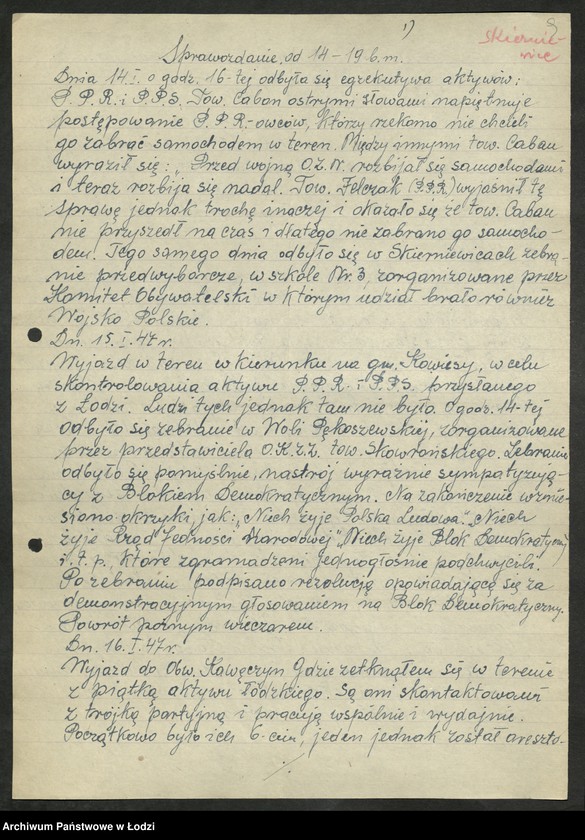 1)
Skiernie-
wice
Sprawozdanie, od 14 – 19 b.m.
Dnia 14.I. o godz. 16-tej odbyła się egzekutywa aktywów:
P.P.R. i P.P.S. Tow. Caban ostrymi słowami napiętnuje
postępowanie P.P.R.-owców, którzy rzekomo nie chcieli
go zabrać samochodem w teren. Między innymi tow. Caban
wyraził się: „Przed wojną O.Z.N. rozbijał się samochodami
i teraz rozbija się nadal. Tow. Felczak (P.P.R.) wyjaśnił tę
sprawę jednak trochę inaczej i okazało się że tow. Caban
nie przyszedł na czas i dlatego nie zabrano go samocho-
dem. Tego samego dnia odbyło się w Skierniewicach zebra-
nie przedwyborcze, w szkole Nr. 3, zorganizowane przez
Komitet Obywatelski w którym udział brało również
Wojsko Polskie.
Dn. 15.I.47r.
Wyjazd w teren w kierunku na gm. Kowiesy, w celu
skontrolowania aktywu P.P.R. i P.P.S. przysłanego
z Łodzi. Ludzi tych jednak tam nie było. O godz. 14-tej
odbyło się zebranie w Woli Pękoszewskiej, zorganizowane
przez przedstawiciela O.K.Z.Z. tow. Skowrońskiego. Zebranie
odbyło się pomyślnie, nastrój wyraźnie sympatyzują-
cy z Blokiem Demokratycznym. Na zakończenie wznie-
siono okrzyki, jak: „Niech żyje Polska Ludowa" „Niech
żyje Rząd Jedności Narodowej" „Niech żyje Blok Demokratyczny
i.t.p., które zgromadzeni jednogłośnie podchwycili.
Po zebraniu podpisano rezolucję opowiadającą się za
demonstracyjnym głosowaniem na Blok Demokratyczny.
Powrót późnym wieczorem.
Dn. 16.I.47r.
Wyjazd do Obw. Kawęczyn gdzie zetknąłem się w terenie
z piątką aktywu łódzkiego. Są oni skontaktowani
z trójką partyjną i pracują wspólnie i wydajnie.
Początkowo było ich 6-ciu, jeden jednak został areszto-
Archiwum Państwowe w Łodzi